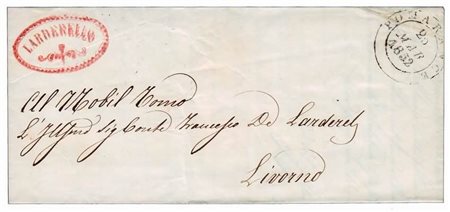 LARDERELLO
POMARANCE
25
MAR
1852
Al Nobil Uomo
L'Illmo Sig Conte Francesco De Larderel
Livorno